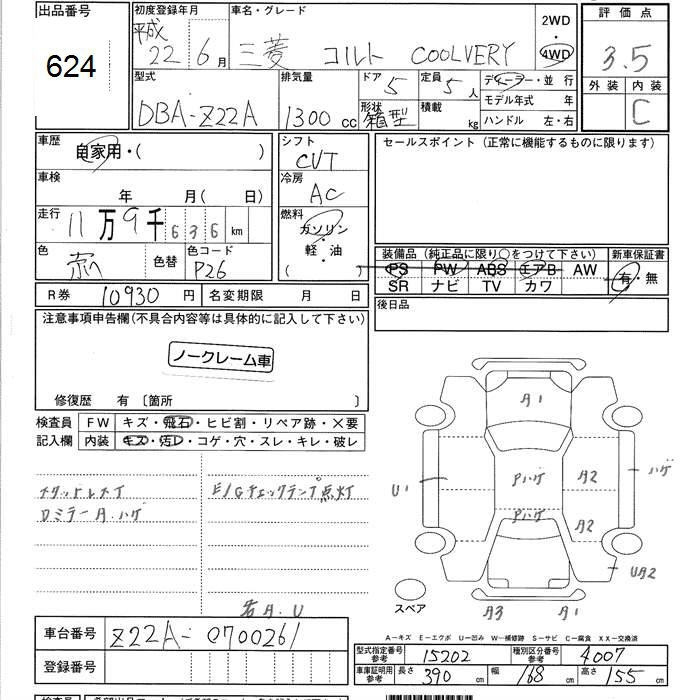 出品番号
624
初度登録年月
平成 22年 6月
車名・グレード
三菱 コルト COOLVERY
2WD
・
4WD
評価点
3.5
外装 内装
C
型式
DBA-Z22A
排気量
1300 cc
ドア 5
形状 箱型
定員 5人
積載 kg
ディーラー・並行
モデル年式 年
ハンドル 左・右
車歴
自家用・( )
車検
年 月( 日)
走行
11万9千636km
色
赤
色替
色コード
P26
シフト
CVT
冷房
AC
燃料
ガソリン
・
軽・油
( )
セールスポイント(正常に機能するものに限ります)
装備品(純正品に限り○をつけて下さい)
PS PW ABS エアB AW
SR ナビ TV カワ
新車保証書
有・無
後日品
R券 10930円
名変期限 月 日
注意事項申告欄(不具合内容等は具体的に記入して下さい)
ノークレーム車
修復歴 有〔箇所 〕
検査員
記入欄
FW キズ・飛石・ヒビ割・リペア跡・×要
内装 キズ・汚レ・コゲ・穴・スレ・キレ・破レ
Dミラー A.ハゲ
E/Gチェックランプ点灯
若A.U
A1
U1
Pハゲ
Pハゲ
A2
A2
ハゲ
UA2
A3
A1
スペア
車台番号
Z22A-0700261
登録番号
A-キズ E-エクボ U-凹み W-補修跡 S-サビ C-腐食 XX-交換済
型式指定番号
参考
15202
種別区分番号
参考
4007
車庫証明用
参考
長さ 390cm 幅 168cm 高さ 155cm